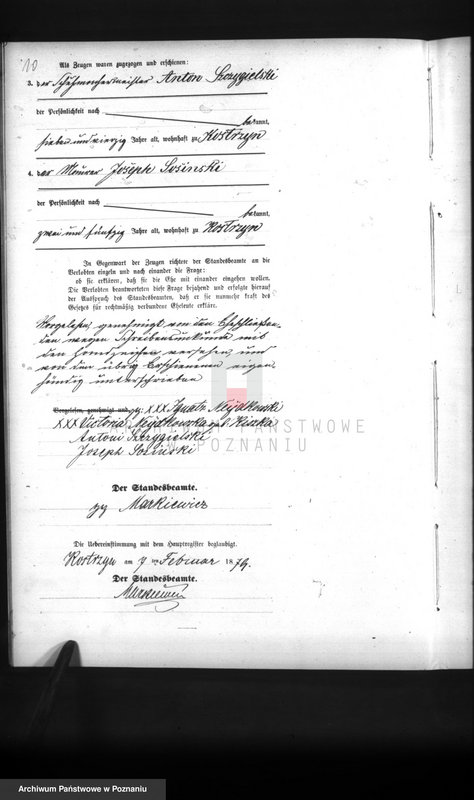 10
Als Zeugen waren zugezogen und erschienen:
3. der Schuhmachermeister Anton Szczygielski
der Persönlichkeit nach
bekannt,
sieben und vierzig Jahre alt, wohnhaft zu Kostrzyn
4. der Maurer Joseph Sosinski
der Persönlichkeit nach
bekannt,
zwei und fünfzig Jahre alt, wohnhaft zu Kostrzyn
In Gegenwart der Zeugen richtete der Standesbeamte an die
Verlobten einzeln und nach einander die Frage:
ob sie erklären, daß sie die Ehe mit einander eingehen wollen.
Die Verlobten beantworteten diese Frage bejahend und erfolgte hierauf
der Ausspruch des Standesbeamten, daß er sie nunmehr kraft des
Gesetzes für rechtmäßig verbundene Eheleute erkläre.
Vorgelesen, genehmigt von den Eheschließen-
den wegen Schreibensunkunde mit
den Handzeichen versehen, und
von den übrig Erschienenen eigen-
händig unterschrieben
Vorgelesen, genehmigt und XXX Ignatz Nejdkowski
XXX Victoria Nejdkowska geb.
Antoni Szczygielski
Joseph Sosinski
ARCHIWUM PAŃSTWOWE
W POZNANIU
Der Standesbeamte.
gz Markiewicz
Die Uebereinstimmung mit dem Hauptregister beglaubigt.
Kostrzyn am 7 ten Februar 1879.
Der Standesbeamte.
Markiewicz
Archiwum Państwowe w Poznaniu